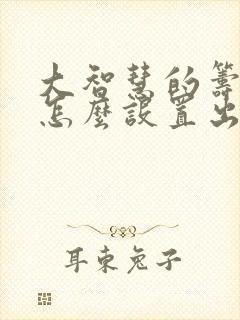 大智慧的籌
怎麼設置出
耳東兔子